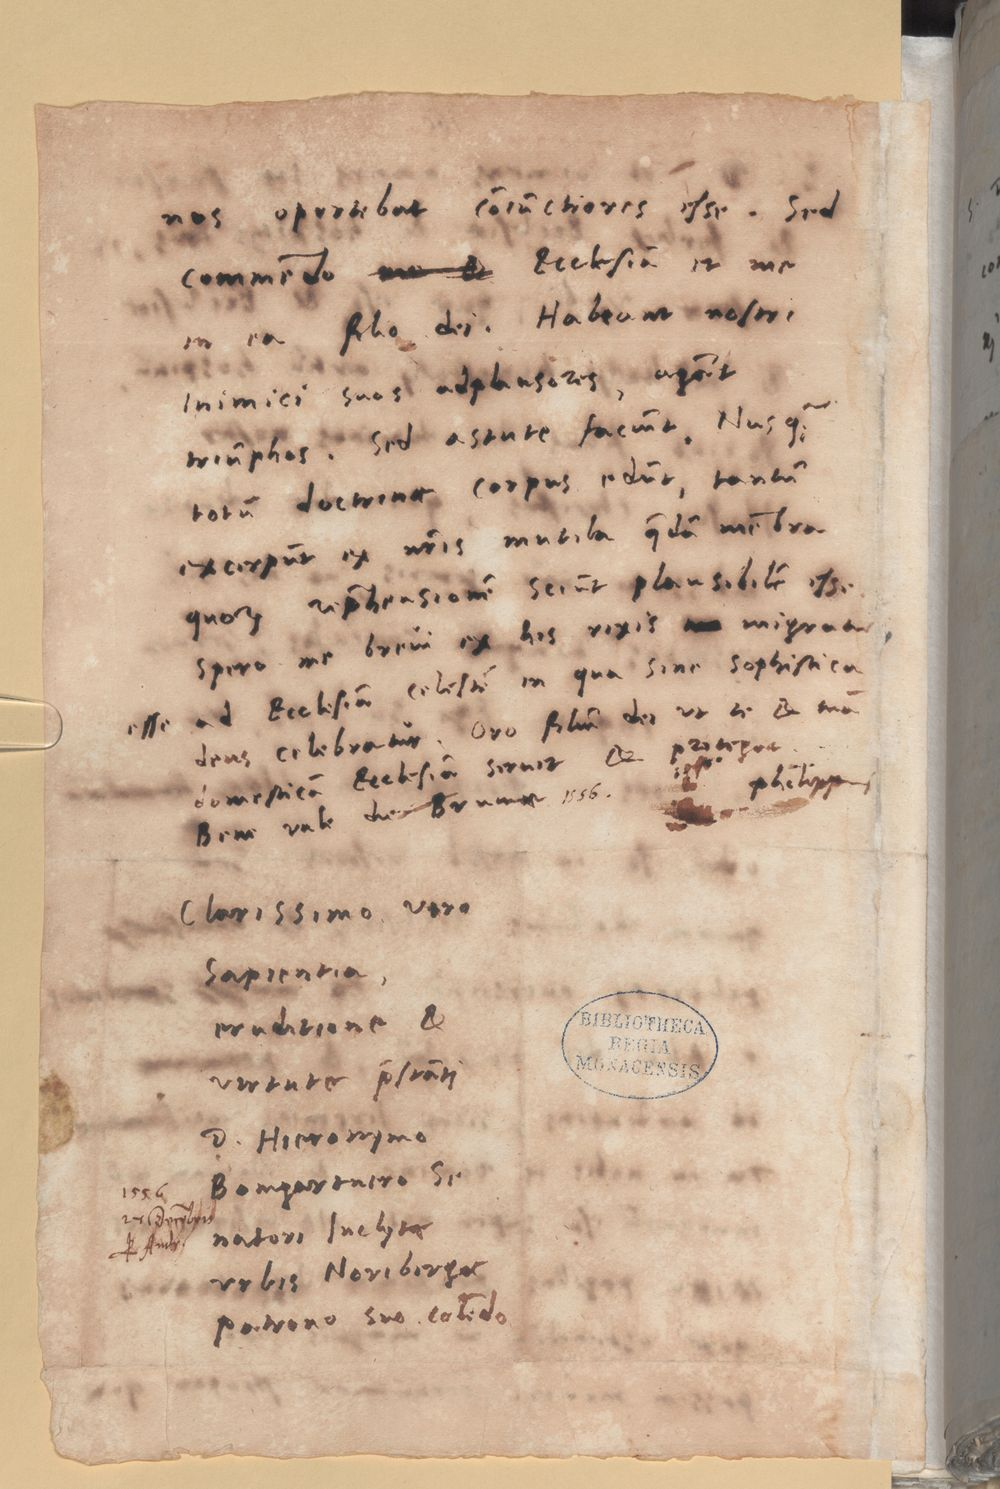 nos oportebat cōiūctiores esse. Sed
commēdo Ecclesiā et me
in ea filio dei. Habeant nostri
inimici suos adplausores, agāt
triūphos. Sed astute faciūt. Nusqꝫ
totū doctrinae corpus edūt, tantū
excerpūt ex nr̄is mutila q̄dā mēbra
quorꝫ rep̄hensionē sciūt plausibilē esse
spero me brevi ex his rixis migraturū
esse ad Ecclesiā celestē in qua sine sophistica
deus celebratur. Oro filiū dei ut te & tuā
domesticā Ecclesiā servet & protegat.
Bene vale die Brumae 1556. philippus
Clarissimo viro
Sapientia,
eruditione &
virtute p̄stāti
D. Hieronymo
Bomgartnero Se
natori Inclytae
urbis Noribergae
patrono suo colēdo
1556
BIBLIOTHECA
REGIA
MONACENSIS